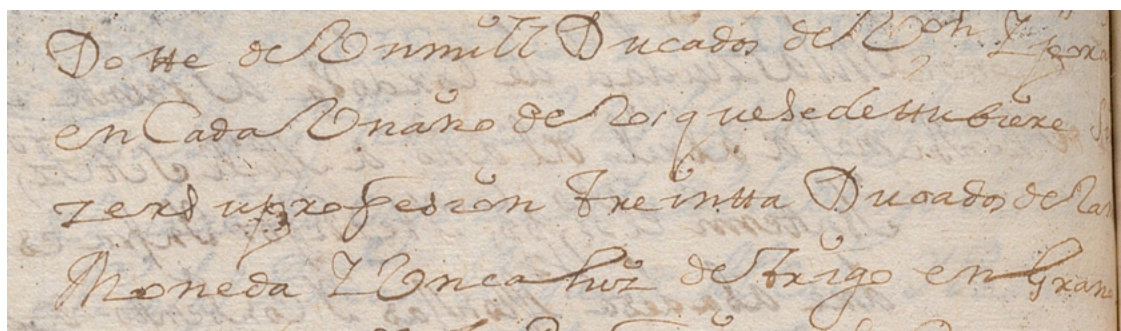 Dotte de Un mill Ducados de Von Y por
en Cada Un año de los que se dettubiere
zer su profesion treintta Ducados de la
Moneda Y Un cahiz de trigo en Grano